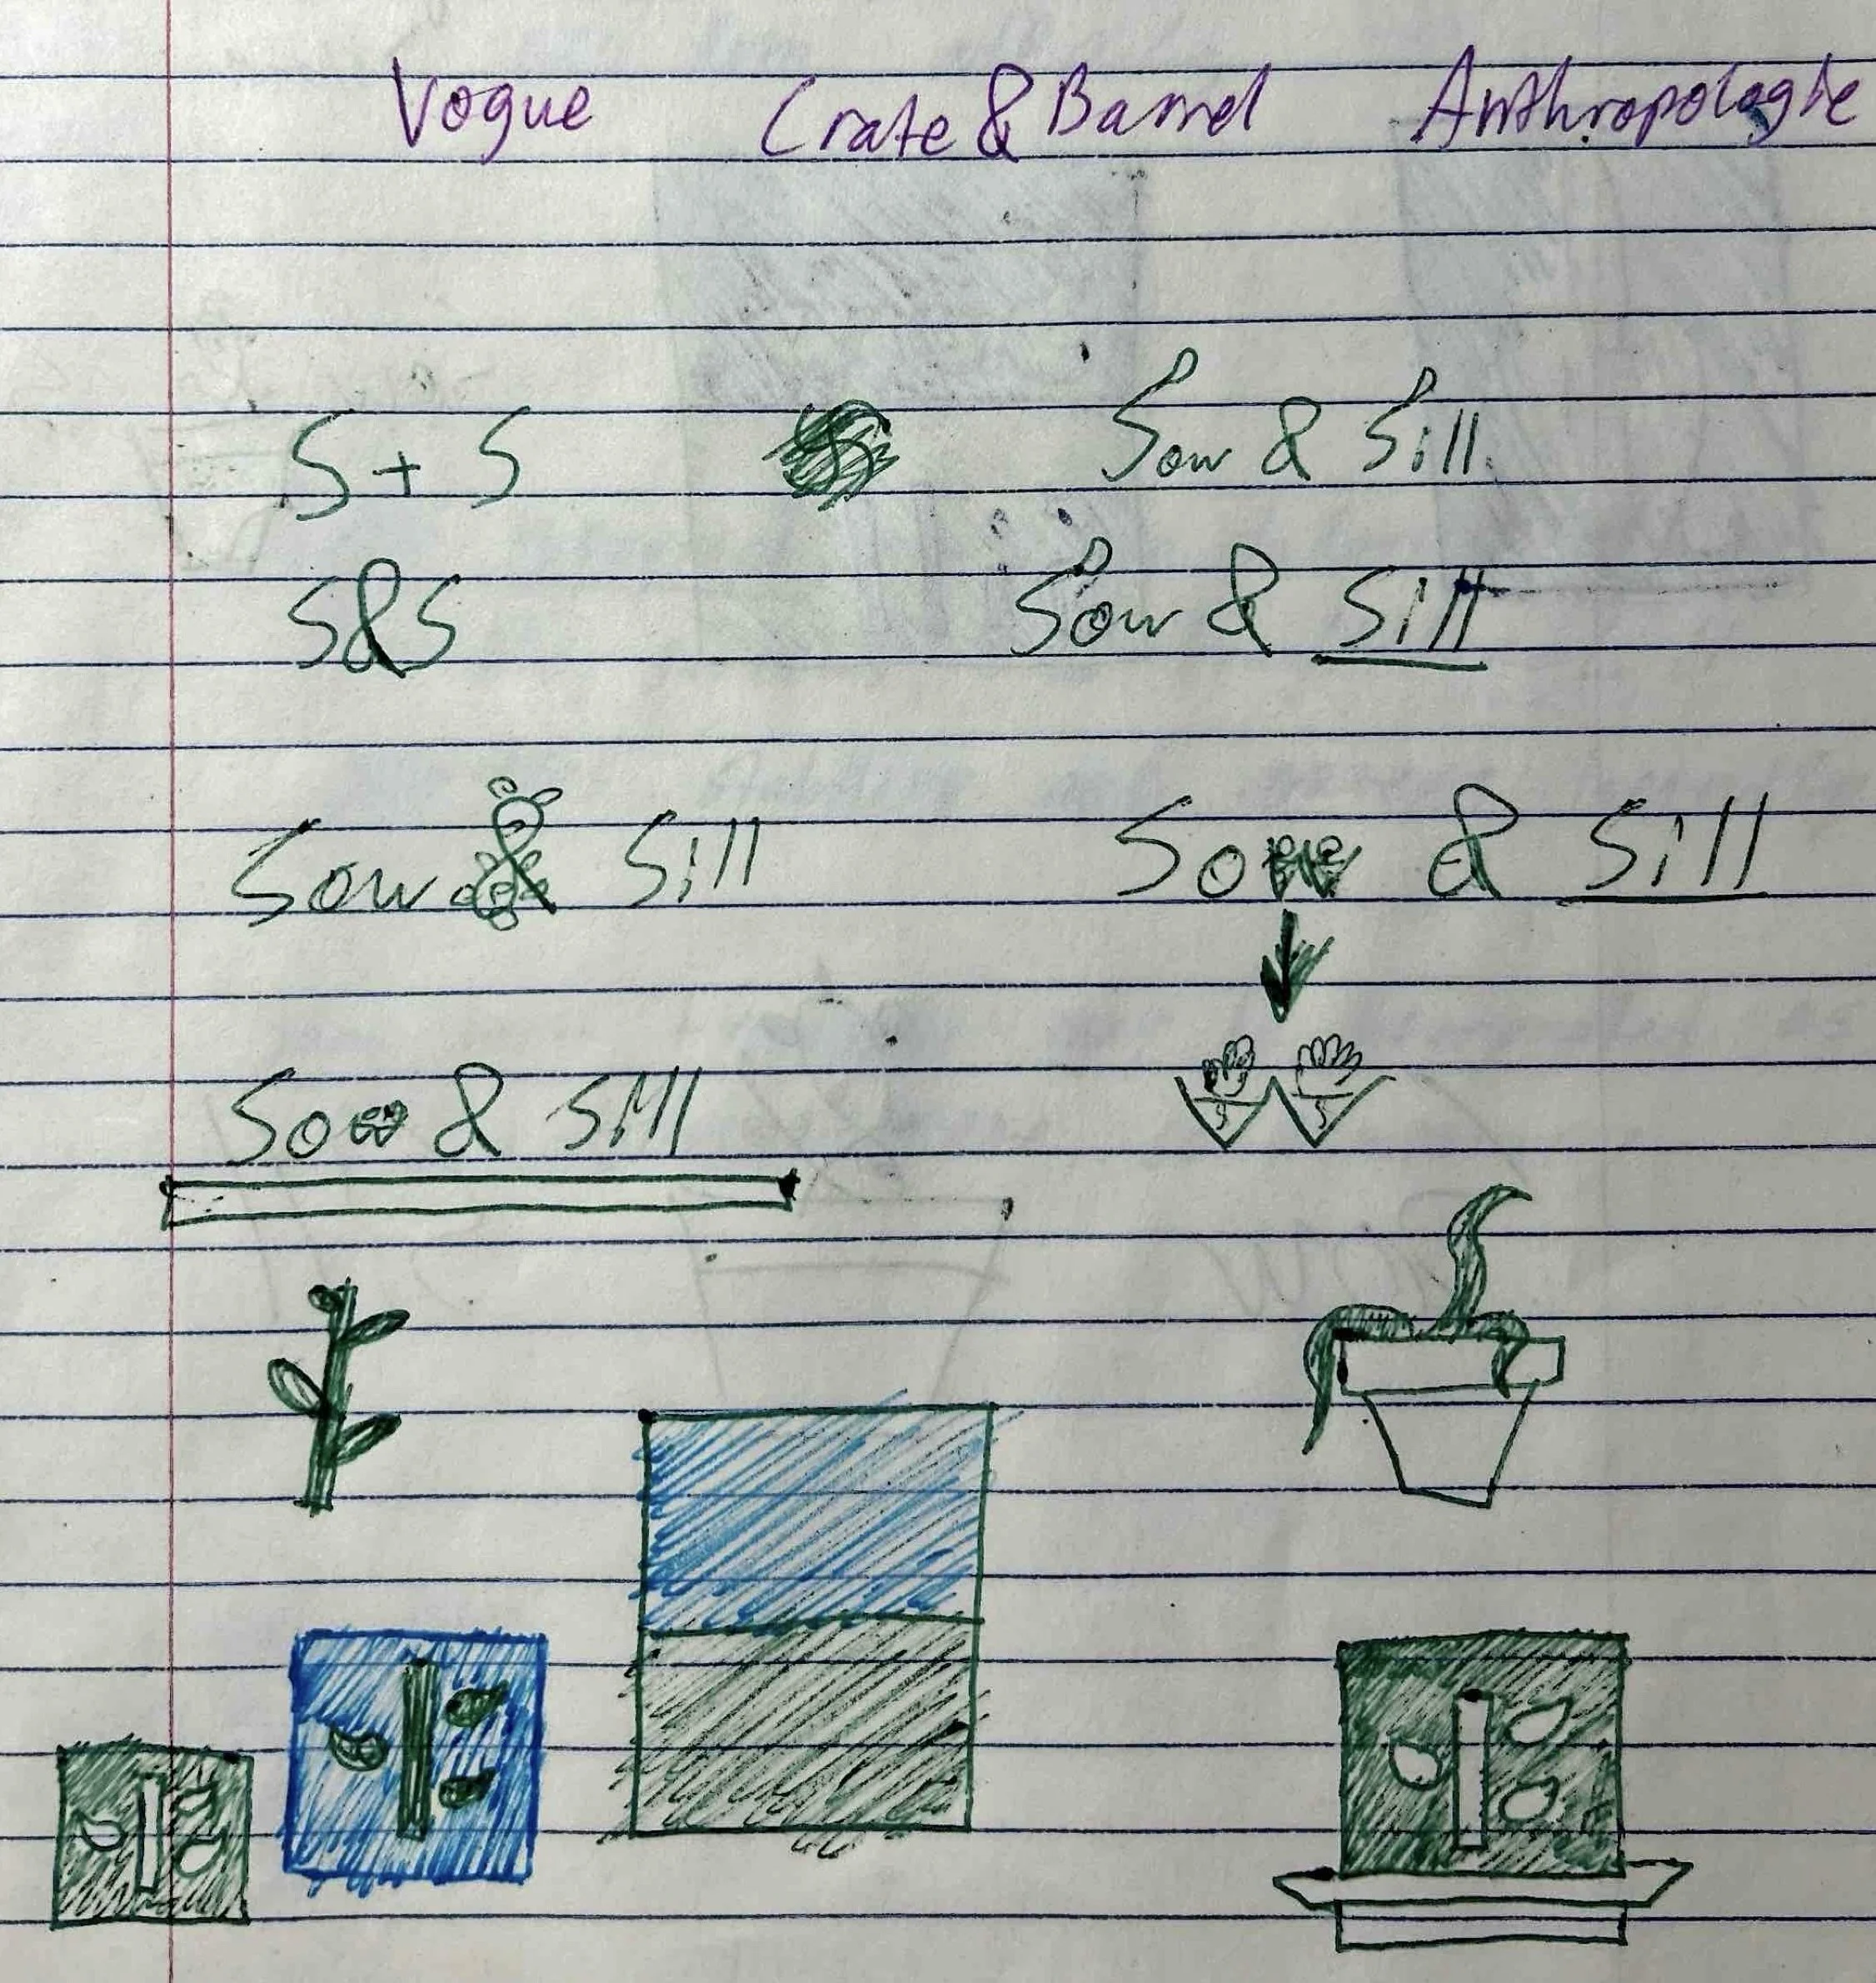 Vogue Crate & Barrel Anthropologie
S + S Sow & Sill
S&S Sow & Sill
Sow & Sill Sow & Sill
Sow & Sill